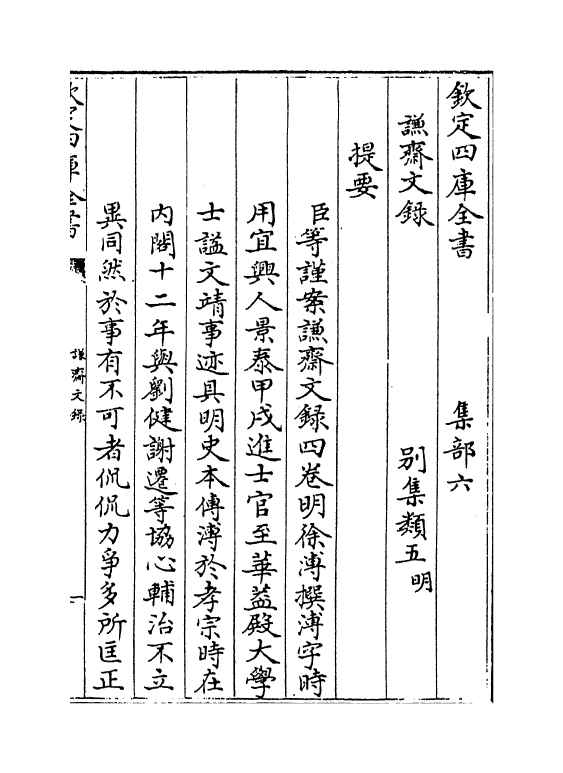 欽定四庫全書　集部六
謙齋文録　別集類五明
提要
臣等謹案謙齋文録四卷明徐溥撰溥字時
用宜興人景泰甲戌進士官至華葢殿大學
士諡文靖事迹具明史本傳溥於孝宗時在
内閣十二年與劉健謝遷等協心輔治不立
異同然於事有不可者侃侃力爭多所匡正
欽定四庫全書
謙齋文録
一